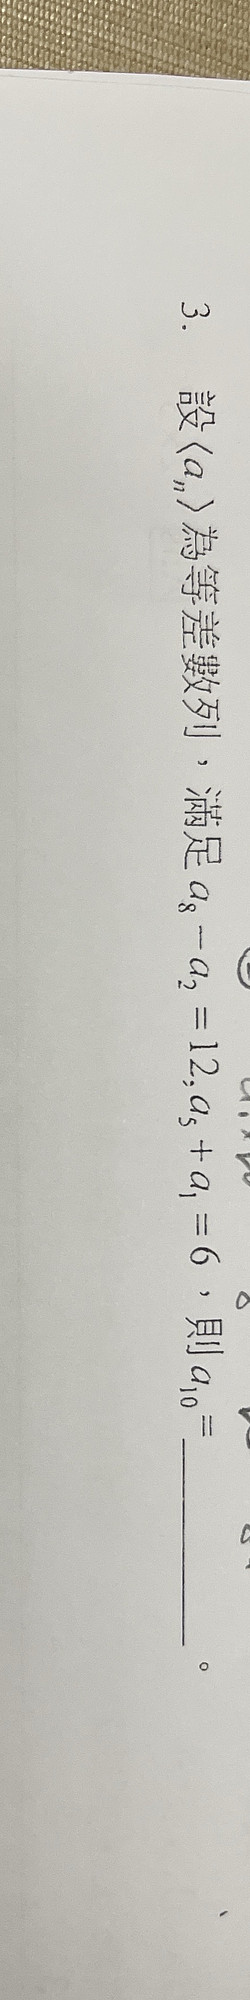 3. 設⟨aₙ⟩為等差數列，滿足 a₈－a₂＝12，a₅＋a₁＝6，則 a₁₀＝________。